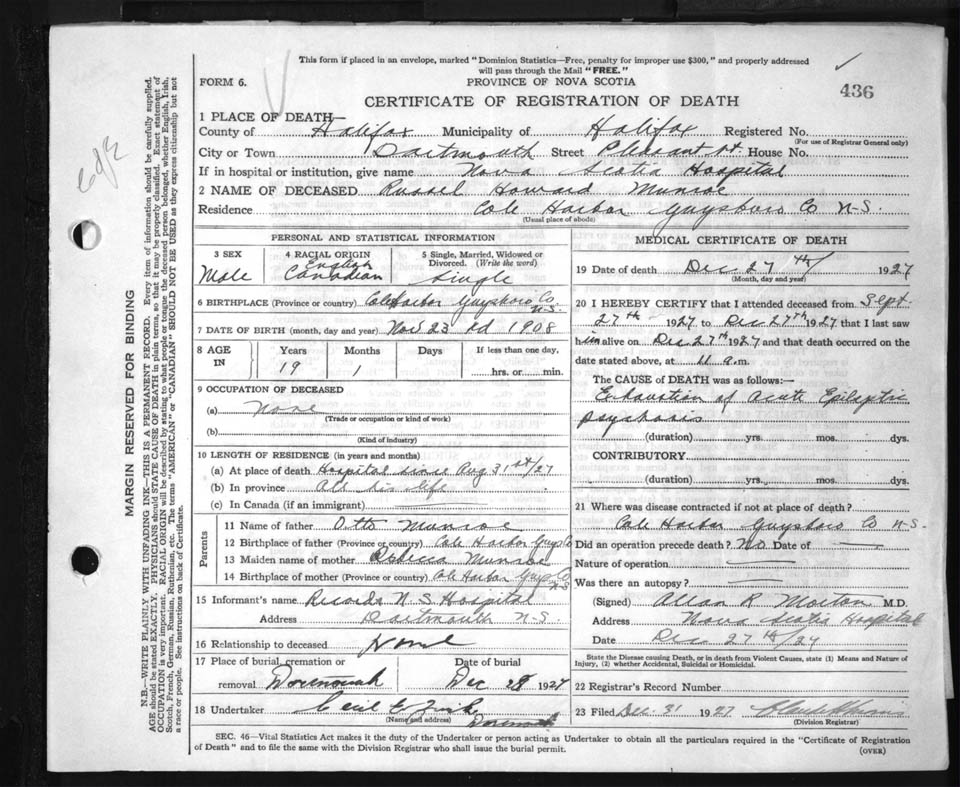 This form if placed in an envelope, marked "Dominion Statistics—Free, penalty for improper use $300," and properly addressed
will pass through the Mail "FREE."
FORM 6.
PROVINCE OF NOVA SCOTIA
436
CERTIFICATE OF REGISTRATION OF DEATH
1 PLACE OF DEATH—
County of Halifax Municipality of Halifax Registered No.
(For use of Registrar General only)
City or Town Dartmouth Street Pleasant St. House No.
If in hospital or institution, give name Nova Scotia Hospital
2 NAME OF DECEASED Russel Howard Munroe
Residence Cole Harbor Guysboro Co N-S.
(Usual place of abode)
PERSONAL AND STATISTICAL INFORMATION
3 SEX
Male
4 RACIAL ORIGIN
English
Canadian
5 Single, Married, Widowed or
Divorced. (Write the word)
Single
6 BIRTHPLACE (Province or country) Cole Harbor Guysboro Co
N-S.
7 DATE OF BIRTH (month, day and year) Nov 23 rd 1908
8 AGE
IN
Years Months Days If less than one day,
19 1 hrs. or min.
9 OCCUPATION OF DECEASED
(a) None
(Trade or occupation or kind of work)
(b)
(Kind of industry)
10 LENGTH OF RESIDENCE (in years and months)
(a) At place of death Hospital since Aug 31st/27
(b) In province All his life
(c) In Canada (if an immigrant)
Parents
11 Name of father Otto Munroe
12 Birthplace of father (Province or country) Cole Harbor Guys Co
13 Maiden name of mother Rebecca Munroe
14 Birthplace of mother (Province or country) Cole Harbor Guys Co
N-S
15 Informant's name Records N.S Hospital
Address Dartmouth N-S.
16 Relationship to deceased None
17 Place of burial, cremation or
removal Date of burial
Dec 28 1927
18 Undertaker Cecil E Zink
(Name and address)
MEDICAL CERTIFICATE OF DEATH
19 Date of death Dec 27th/ 1927
(Month, day and year)
20 I HEREBY CERTIFY that I attended deceased from Sept.
27th 1927 to Dec 27th 1927 that I last saw
him alive on Dec. 27th 1927 and that death occurred on the
date stated above, at 11 a.m.
The CAUSE OF DEATH was as follows:—
Exhaustion of Acute Epileptic
psychosis
(duration) yrs. mos. dys.
CONTRIBUTORY
(duration) yrs. mos. dys.
21 Where was disease contracted if not at place of death?
Cole Harbor Guysboro Co N-S.
Did an operation precede death? No Date of
Nature of operation
Was there an autopsy?
(Signed) Allan R Morton M.D.
Address Nova Scotia Hospital
Date Dec 27th/27
State the Disease causing Death, or in death from Violent Causes, state (1) Means and Nature of
Injury, (2) whether Accidental, Suicidal or Homicidal.
22 Registrar's Record Number
23 Filed Dec. 31 1927
(Division Registrar)
SEC. 46—Vital Statistics Act makes it the duty of the Undertaker or person acting as Undertaker to obtain all the particulars required in the "Certificate of Registration
of Death" and to file the same with the Division Registrar who shall issue the burial permit.
(OVER)
MARGIN RESERVED FOR BINDING
N.B.—WRITE PLAINLY WITH UNFADING INK—THIS IS A PERMANENT RECORD. Every item of information should be carefully supplied.
AGE should be stated EXACTLY. PHYSICIANS should STATE CAUSE OF DEATH in plain terms, so that it may be properly classified. Exact statement of
OCCUPATION is very important. RACIAL ORIGIN will be described by stating to what people or tongue the deceased person belonged, whether English, Irish,
Scotch, French, German, Russian, Ruthenian, etc. The terms "AMERICAN" or "CANADIAN" SHOULD NOT BE USED as they express citizenship but not
a race or people. See instructions on back of Certificate.